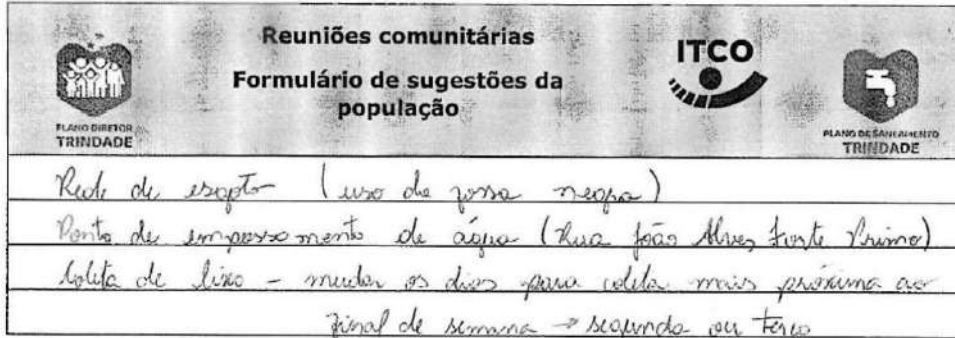 Reuniões comunitárias
Formulário de sugestões da
população
ITCO
PLANO DIRETOR
TRINDADE
PLANO DE SANEAMENTO
TRINDADE
Rede de esgoto (uso de fossa negra)
Ponto de empossamento de água (Rua João Alves Forte Primo)
Coleta de lixo - mudar os dias para coleta mais próxima ao
final de semana → segunda ou terça